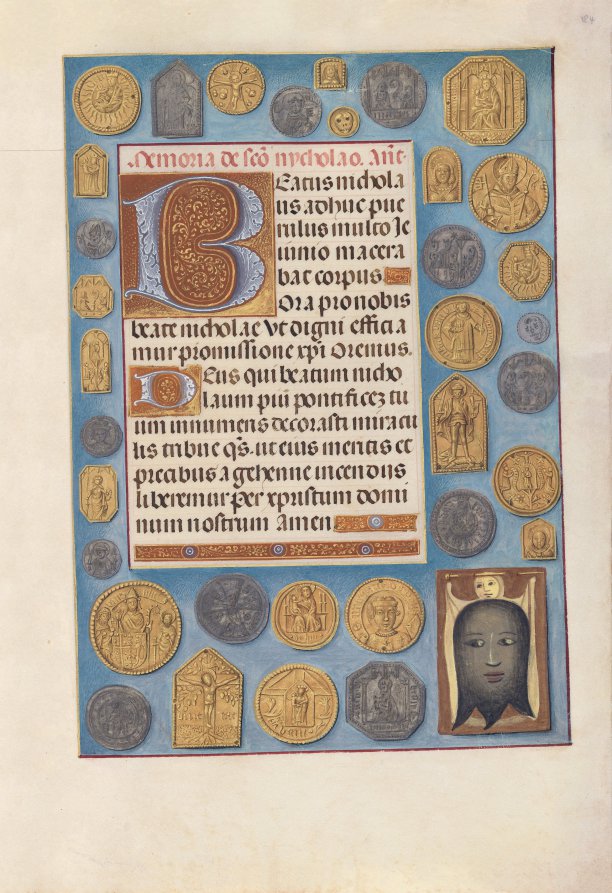 Memoria de scō nycholao. Añt.
Eatus nichola
us adhuc pue
rulus multo Ie
iunio macera
bat corpus
Ora pro nobis
beate nicholae Vt digni effici a
mur promissione xp̄i Oremus.
Eus qui beatum nicho
laum piū pontificez tu
um innumeris decorasti miracu
lis tribue qs. ut eius meritis et
precibus a gehenne incendiis
liberemur Per xpristum domi
num nostrum Amen